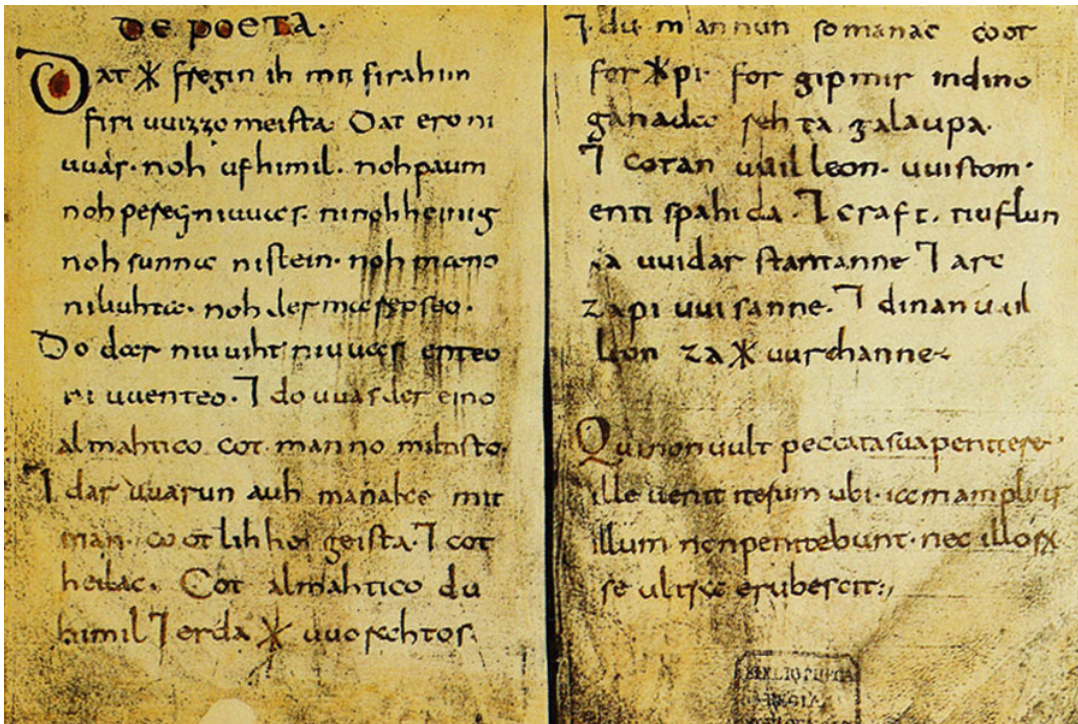 DE POETA·
Dat ᚸ fregin ih mit firahim
firi uuizzo meista· Dat ero ni
uuas· noh ufhimil· noh paum
noh peregniuuas· ninohheinig
noh sunna nistein· noh mano
niliuhta· noh der mareoseo·
Do dar niuuiht niuuas enteo
ni uuenteo· ⁊ do uuas der eino
almahtico cot manno miltisto·
⁊ dar uuarun auh manake mit
man· cootlihhe geista· ⁊ cot
heilac· Cot almahtico du
himil ⁊ erda ᚸ uuorahtos·
⁊ du mannun so manac coot
for ᚸpi· for gip mir indino
ganada rehta galaupa·
⁊ cotan uuilleon· uuistom·
enti spahida· ⁊ craft· tiuflun
za uuidar stantanne ⁊ arc
za pi uuisanne· ⁊ dinan uuil
leon za ᚸ uurchanne·
Qui non uult peccata sua penitere·
ille uenit iterum ubi· iam amplius
illum non penitebunt· nec illorum
se ultra erubescit·
BIBLIOTHECA
REGIA